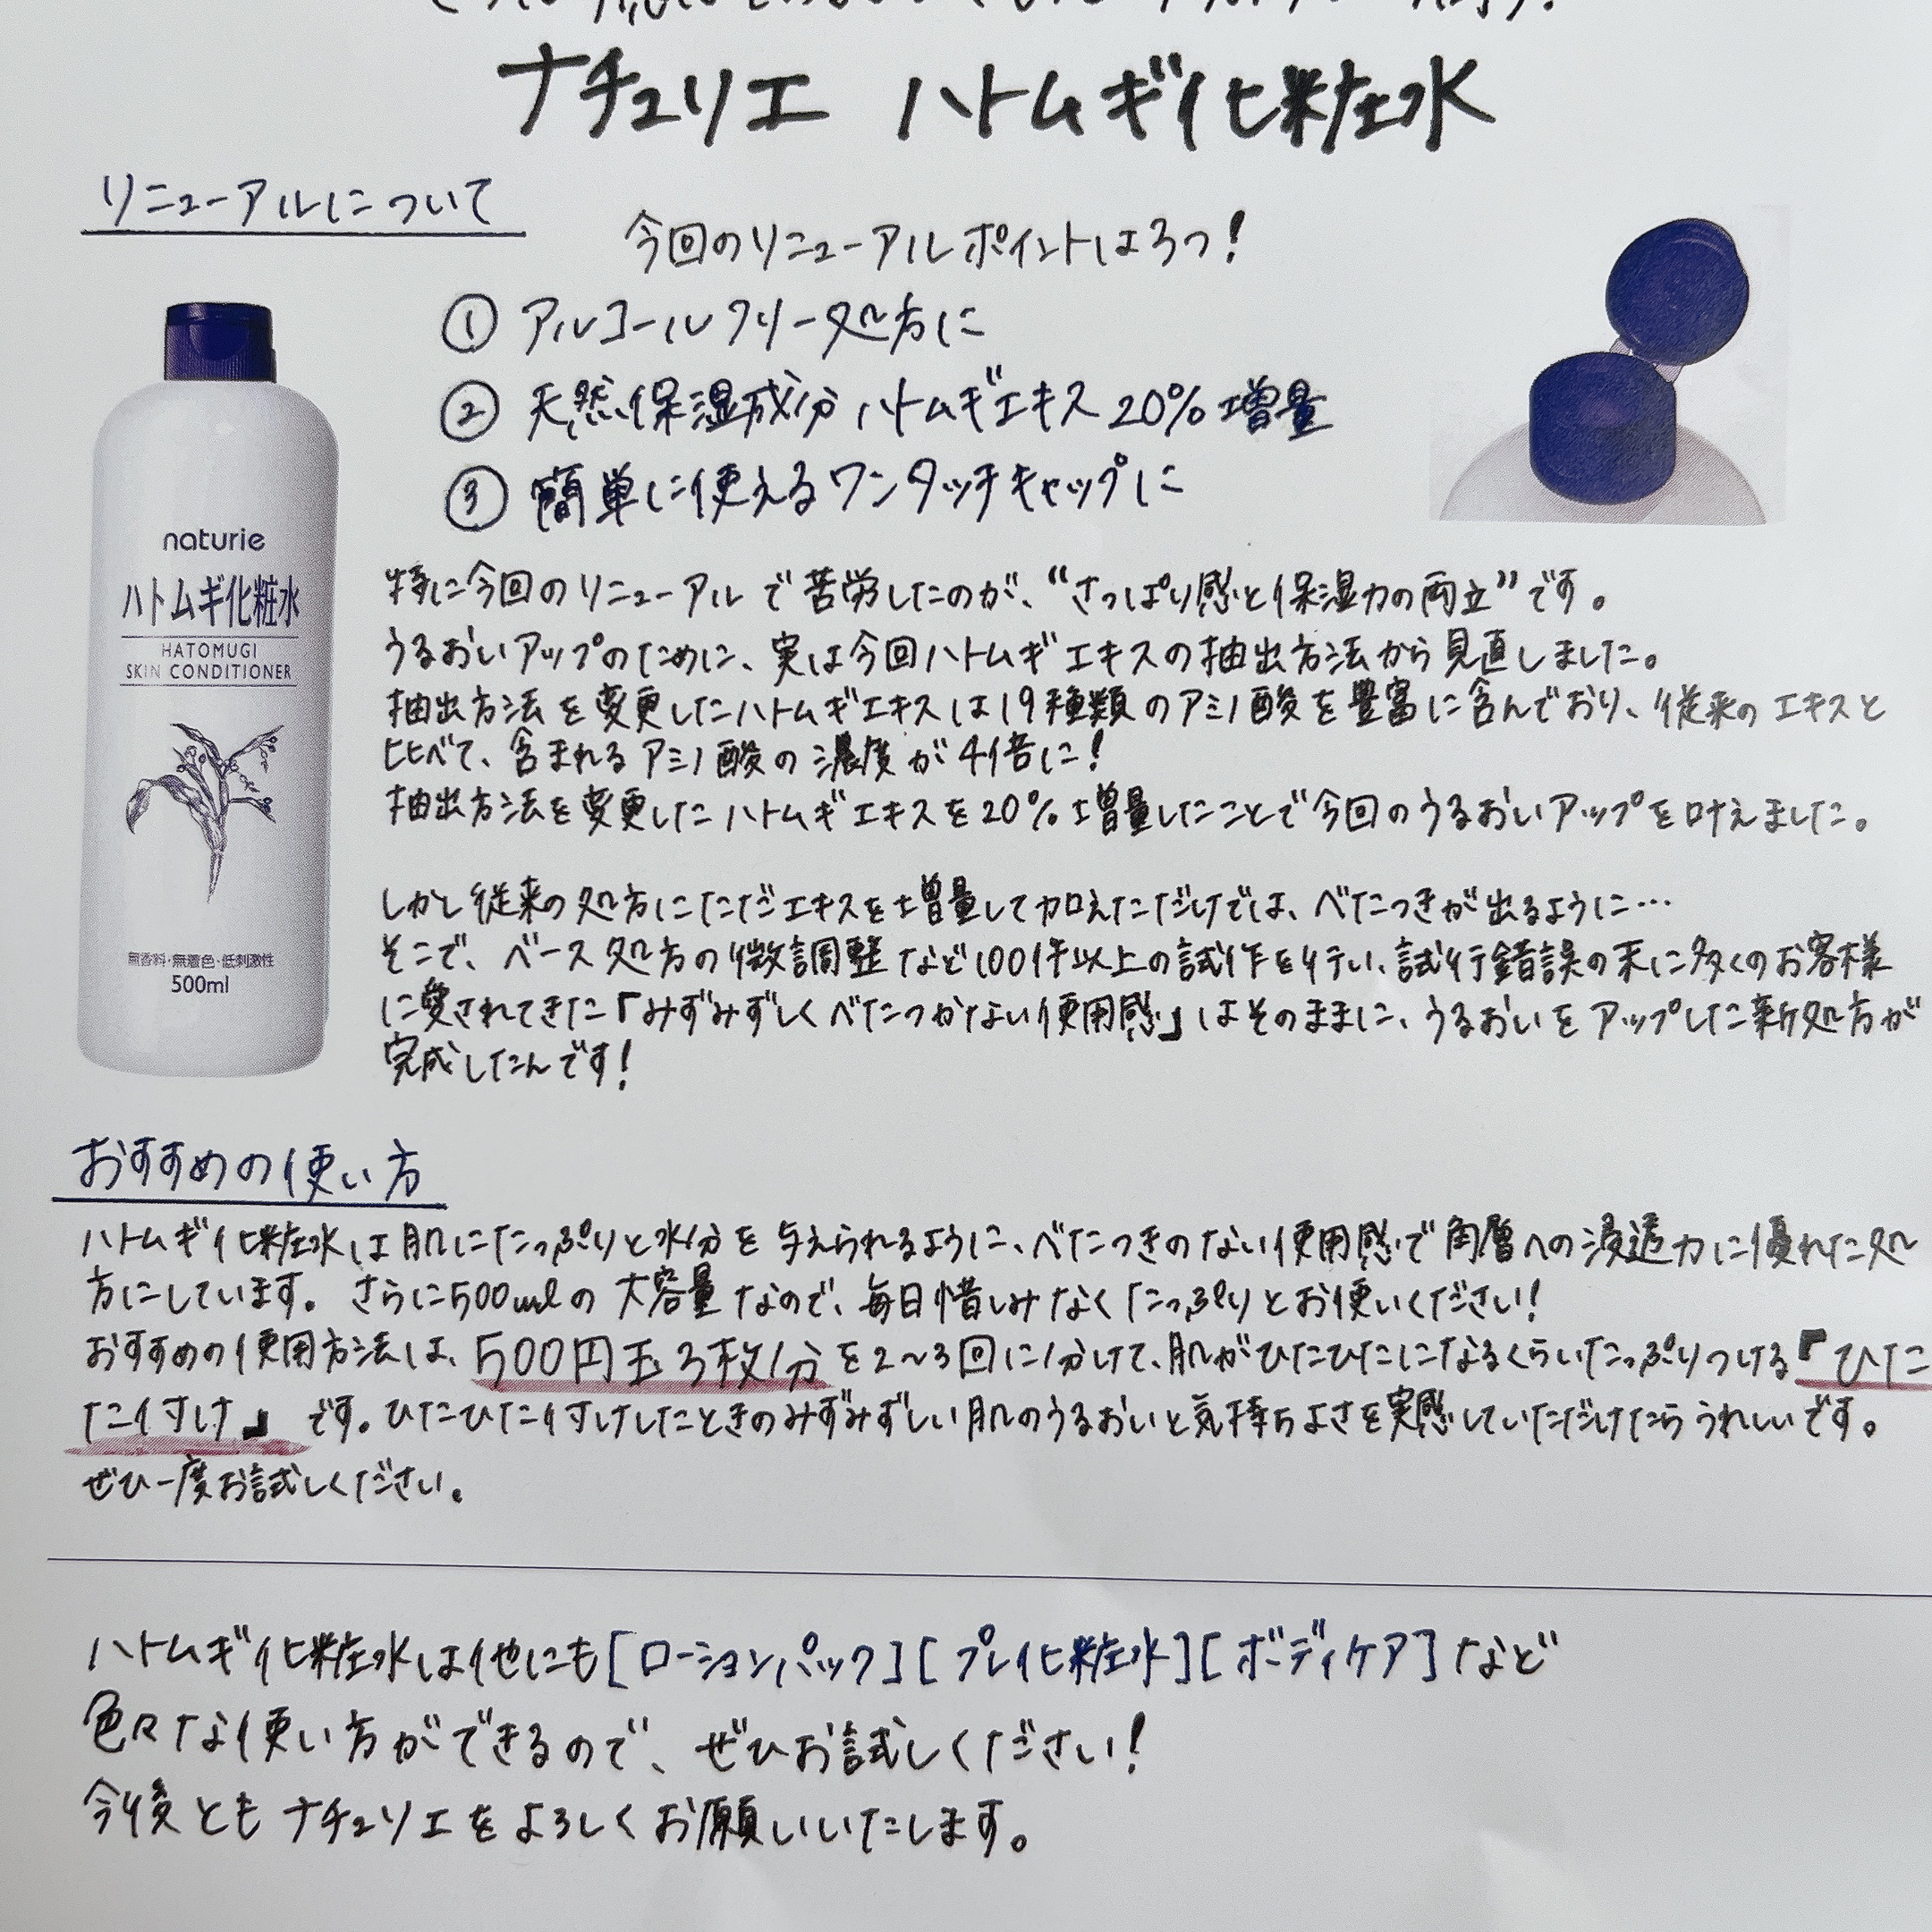 ナチュリエ ハトムギ化粧水
リニューアルについて
今回のリニューアルポイントは3つ!
① アルコールフリー処方に
② 天然保湿成分 ハトムギエキス 20%増量
③ 簡単に使えるワンタッチキャップに
naturie
ハトムギ化粧水
HATOMUGI
SKIN CONDITIONER
無香料・無着色・低刺激性
500ml
特に今回のリニューアルで苦労したのが、“さっぱり感と保湿力の両立”です。
うるおいアップのために、実は今回ハトムギエキスの抽出方法から見直しました。
抽出方法を変更したハトムギエキスは19種類のアミノ酸を豊富に含んでおり、従来のエキスと
比べて、含まれるアミノ酸の濃度が4倍に!
抽出方法を変更したハトムギエキスを20%増量したことで今回のうるおいアップを叶えました。
しかし従来の処方にただエキスを増量して加えただけでは、べたつきが出るように…
そこで、ベース処方の微調整など100件以上の試作を行い、試行錯誤の末に多くのお客様
に愛されてきた『みずみずしくべたつかない使用感』はそのままに、うるおいをアップした新処方が
完成したんです!
おすすめの使い方
ハトムギ化粧水は肌にたっぷりと水分を与えられるように、べたつきのない使用感で角層への浸透力に優れた処
方にしています。さらに500mlの大容量なので、毎日惜しみなくたっぷりとお使いください!
おすすめの使用方法は、500円玉3枚分を2~3回に分けて、肌がひたひたになるくらいたっぷりつける『ひた
た付け』です。ひたひた付けしたときのみずみずしい肌のうるおいと気持ちよさを実感していただけたらうれしいです。
ぜひ一度お試しください。
ハトムギ化粧水は他にも[ローションパック][プレ化粧水][ボディケア]など
色々な使い方ができるので、ぜひお試しください!
今後ともナチュリエをよろしくお願いいたします。